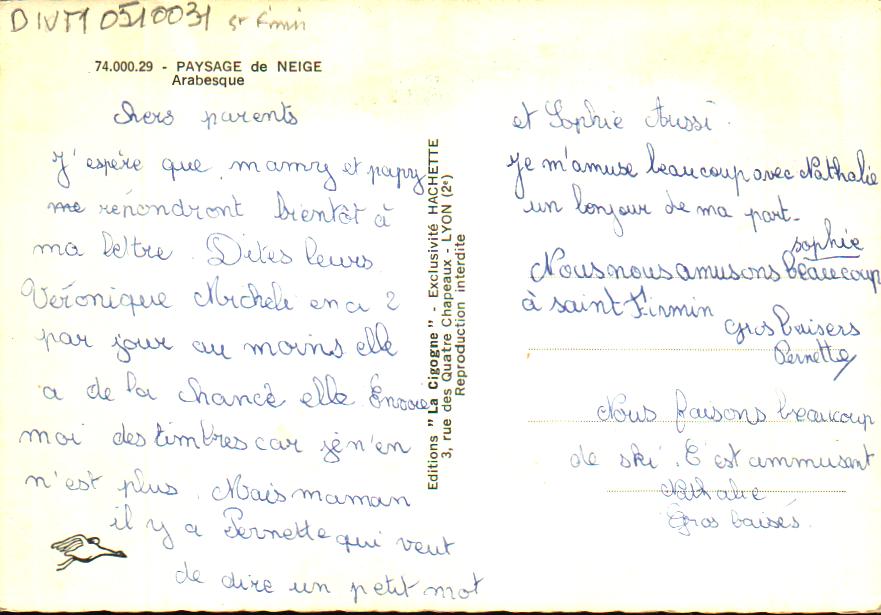 DIVM 0510031 St Firmin
74.000.29 - PAYSAGE de NEIGE
Arabesque
Chers parents
J'espère que mamy et papy
me rénondront bientôt à
ma lettre. Dites leurs
Véronique Michèle en a 2
par jour au moins elle
a de la chance elle Envoie
moi des timbres car je n'en
n'est plus. Mais maman
il y a Pernette qui veut
de dire un petit mot
Editions " La Cigogne " - Exclusivité HACHETTE
3, rue des Quatre Chapeaux - LYON (2e)
Reproduction interdite
et Sophie Aussi.
Je m'amuse beaucoup avec Nathalie
un bonjour de ma part-
sophie
Nous nous amusons beaucoup
à saint Firmin
gros baisers
Pernette
Nous faisons beaucoup
de ski. C'est ammusant
Nathalie
Gros baisés.